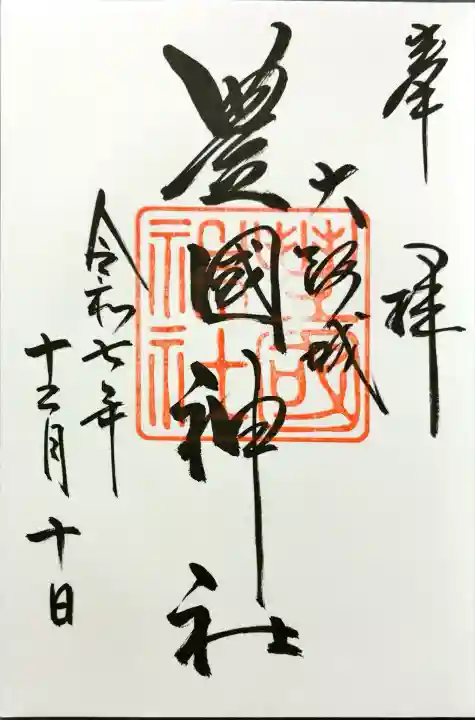 奉拝
大阪城
豊國神社
令和七年
十二月十日
豊國
神社